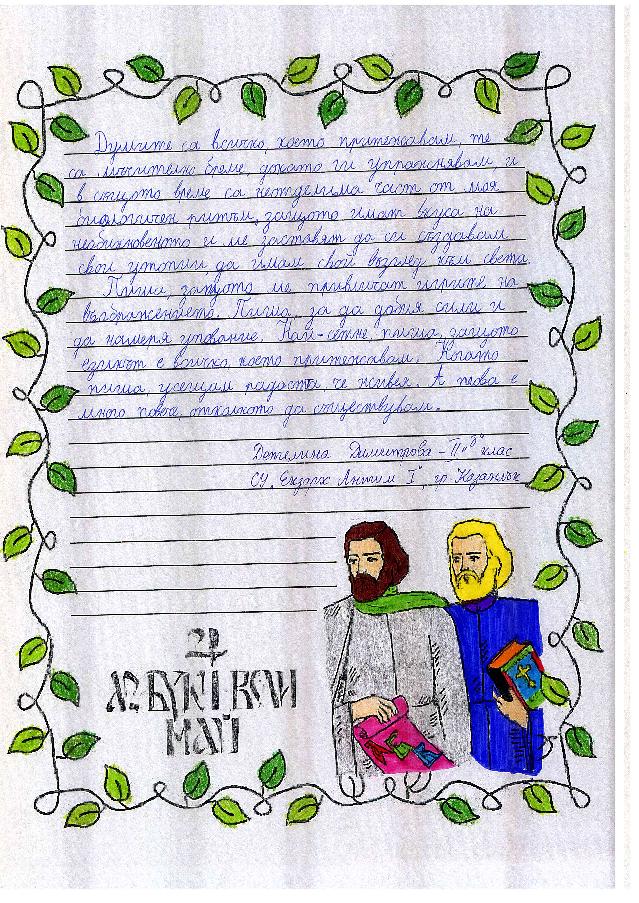 Думите са всичко, което притежавам, те
са мъчително бреме, докато ги упражнявам и
в същото време са неотделима част от моя
биологичен ритъм, защото имат вкуса на
необикновенто и ме заставят да си създавам
свои утопии да имам свой възглед към света.
Пиша, защото ме привличат игрите на
въображението. Пиша, за да добия сили и
да намеря упование. Най-сетне, пиша, защото
езикът е всичко, което притежавам. Когато
пиша усещам радостта, че живея. А това е
много повече, отколкото да съществувам.
Детелина Димитрова - 11 клас
СУ "Екзарх Антим I", гр. Казанлък
24
МАЙ